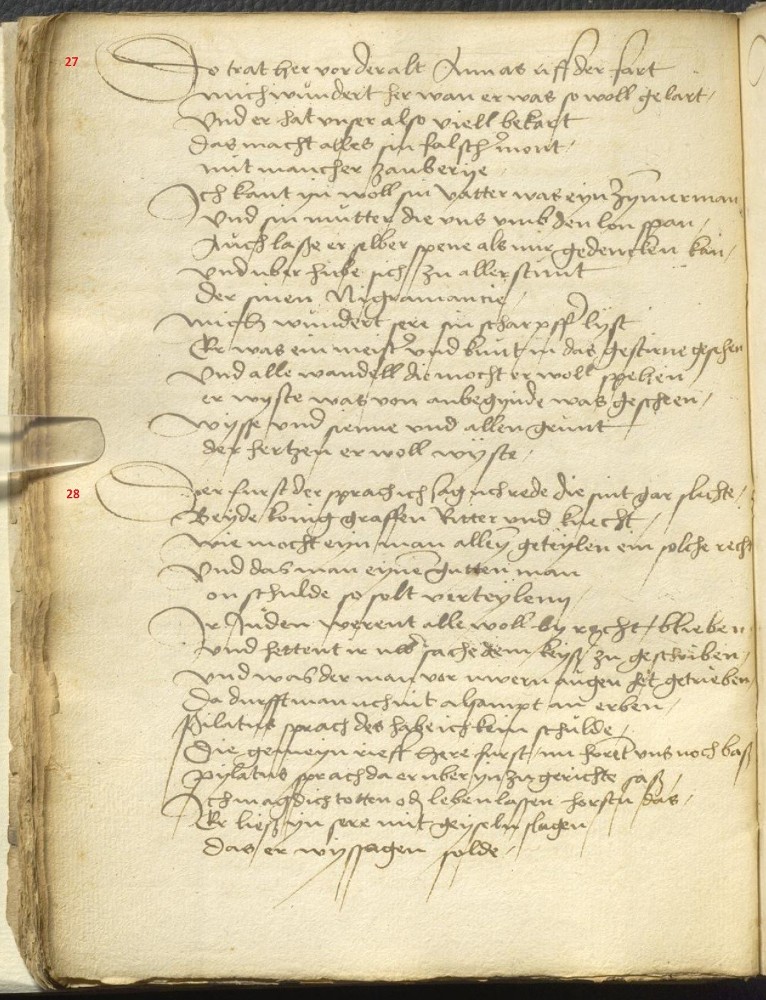 27
Do trat her vor der alt Annas uff der fart
mich wundert her wan er was so woll gelart
Und er hat unser also viell bekart
das macht alles sin falscher mont
mit mancher zauberye
Ich kant yn woll sin vatter was eyn Zymerman
Und sin mutter die uns umb den lon span
Auch lasße er selber spene als mir gedencken kan
und uber hube sich zu aller stunt
der sinen Nigramancie
mich wundert sere sin scharpffer lyst
Er was ein meister und kunt in das gestirne gesehen
Und alle wandell die mocht er woll spehen
er wyste was von anbegynde was gescheen
wysse und sienne und allen grunt
der hertzen er woll wyste
28
Der furst der sprach ich sag uch rede die sint gar slechte
Beyde konig graffen Ritter und knecht
wie mocht eyn man alleyn geteylen ein solche recht
Und das man eynen gutten man
on schulde so solt verteylenn
Ir Juden werent alle woll by recht blieben
und hettent ir uwer sache dem keyser zu geschriben
und was der man vor uwern augen het getrieben
Da durfft man uch nit alsampt an erben
Pilatus sprach des habe ich kein schulde
Die gemeyn rieff here furst nu horet uns noch baß
pylatus sprach da er uber yn zu gerichte saß
Ich mag dich totten oder leben lassen horstu das
Er ließ yn sere mit geyseln slagen
das er wyssagen solde